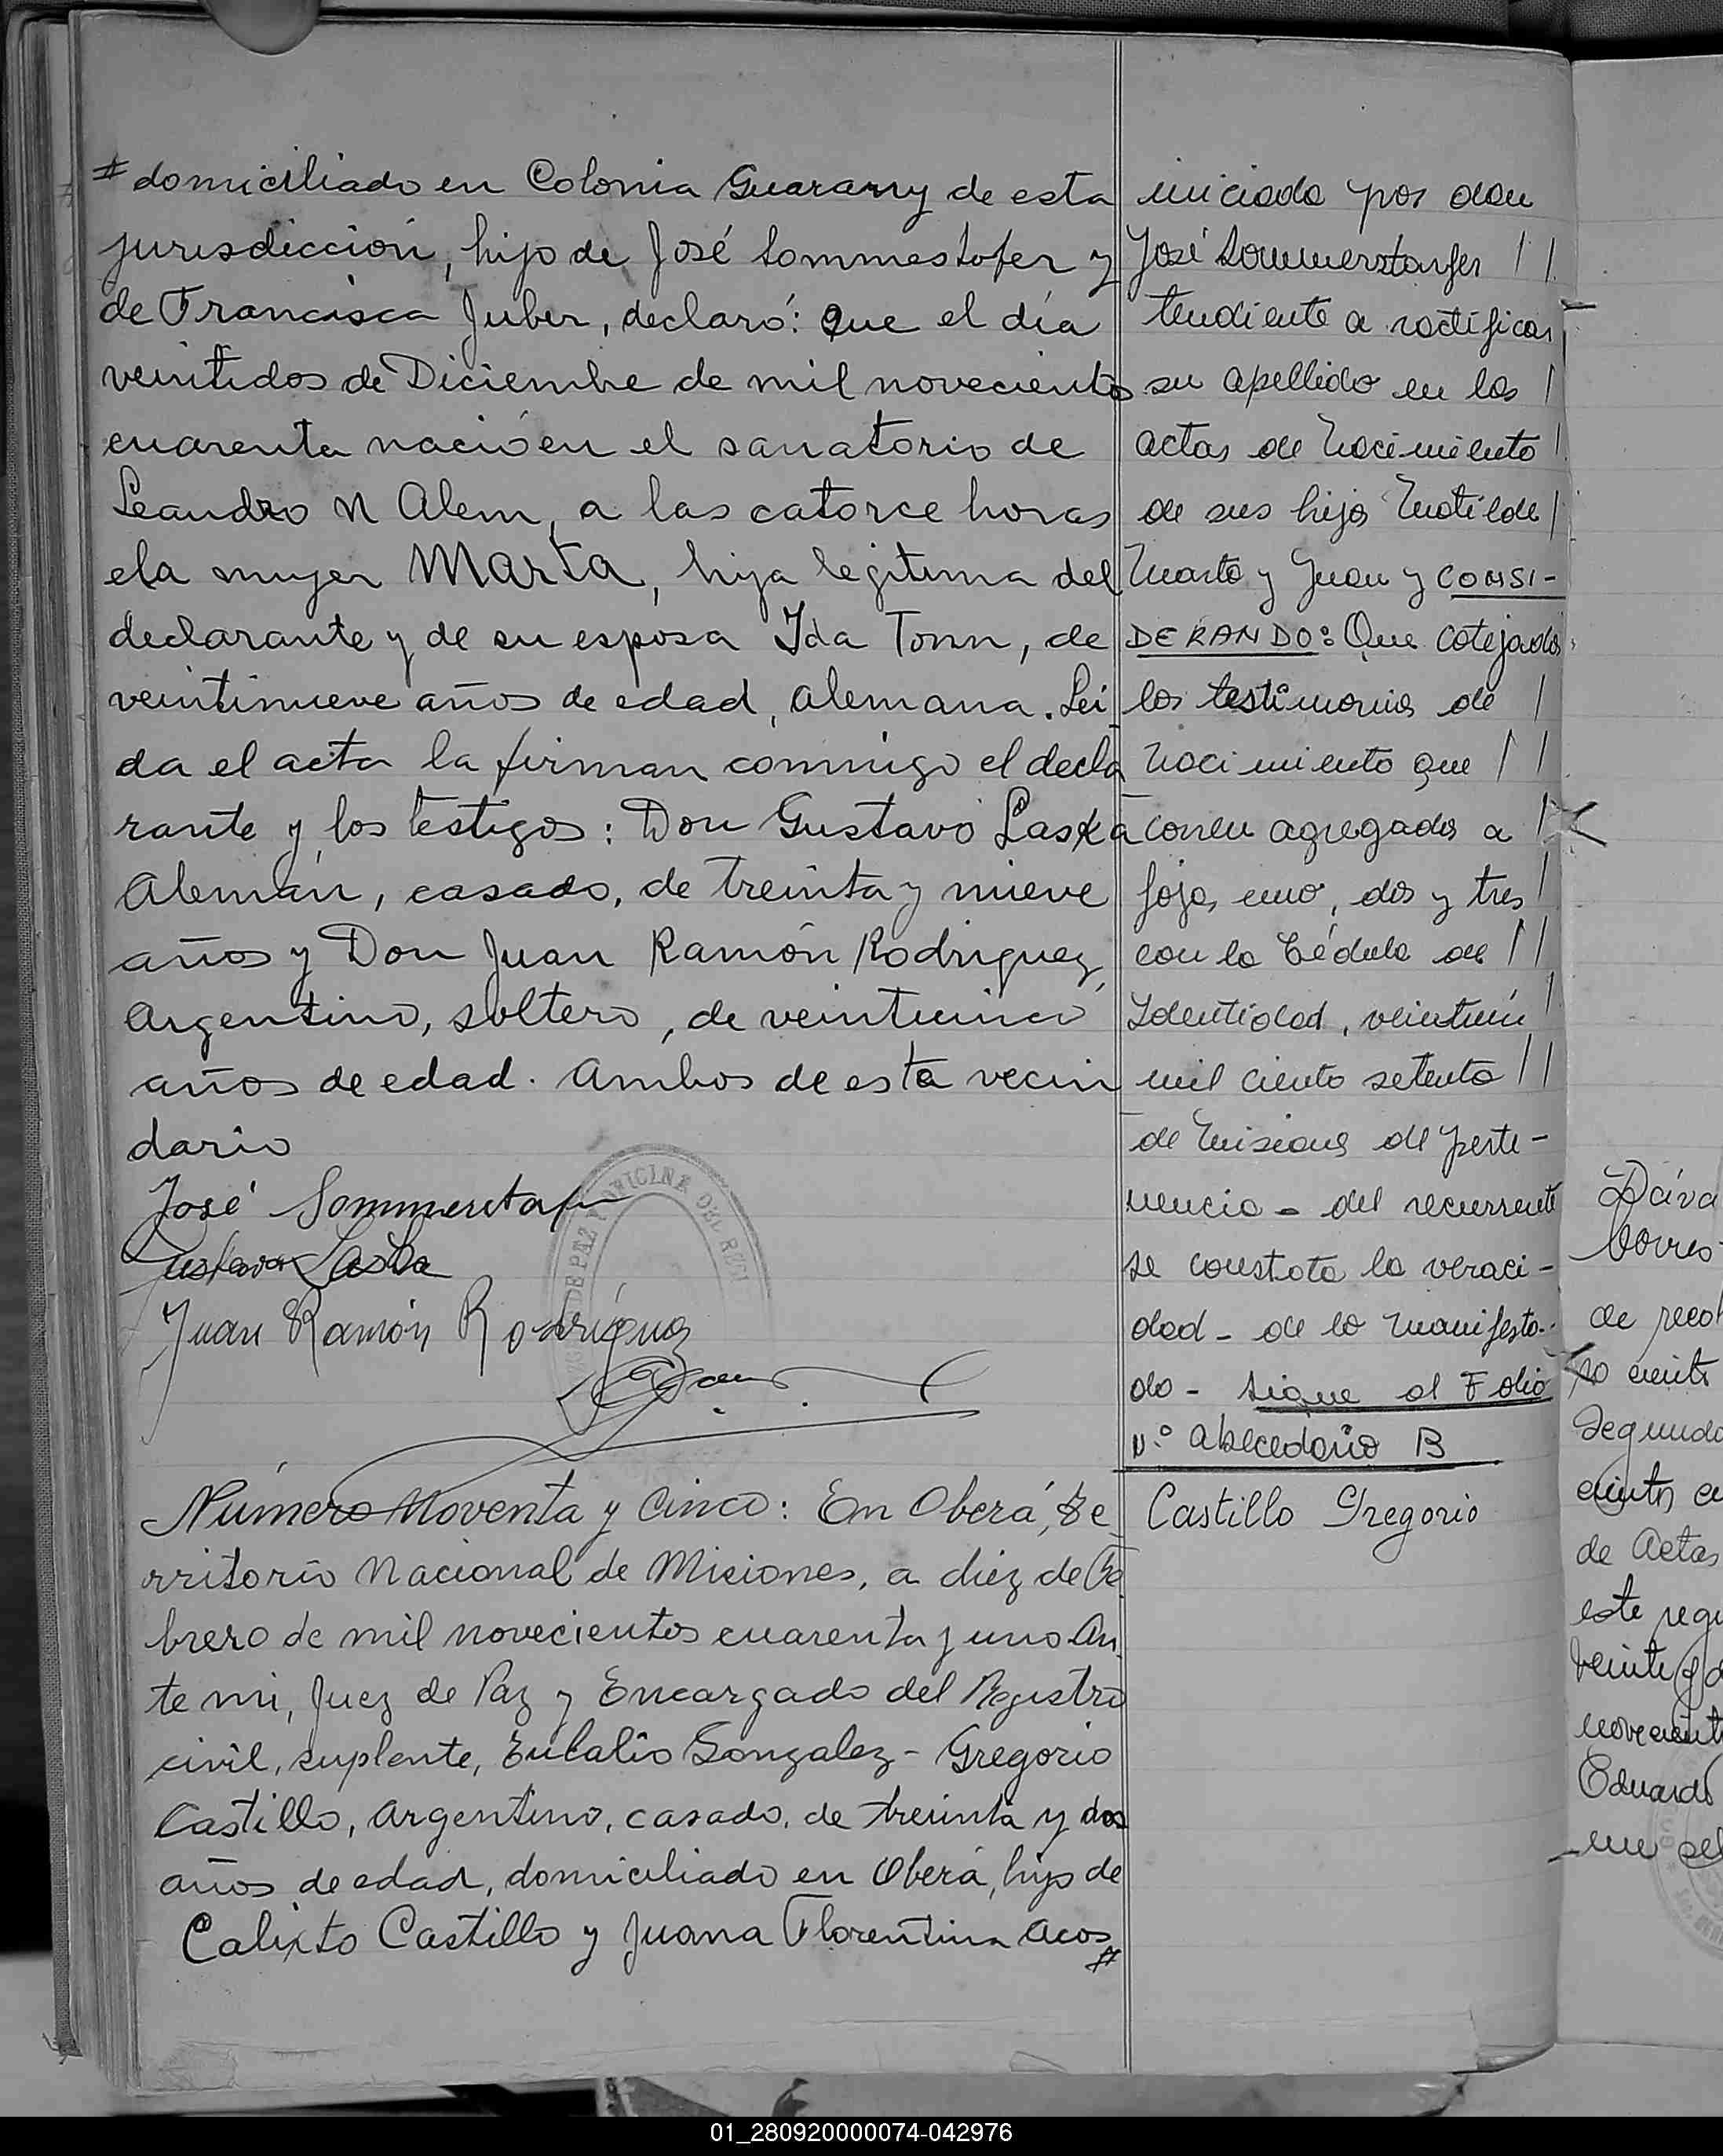 # domiciliado en Colonia Guarany de esta
jurisdicción, hijo de José Sommestofer y
de Francisca Juber, declaró: Que el día
veintidos de Diciembre de mil novecientos
cuarenta nació en el sanatorio de
Leandro N Alem, a las catorce horas
ela mujer Marta, hija legitima del
declarante y de su esposa Ida Tonn, de
veintinueve años de edad, alemana. Lei
da el acta la firman conmigo el decla
rante y los testigos: Don Gustavo Laska
Alemán, casado, de treinta y nueve
años y Don Juan Ramón Rodriguez,
Argentino, soltero, de veinticinco
años de edad. Ambos de esta vecin
dario
José Sommerstof
Gustavo Laska
Juan Ramón Rodríguez
Número Noventa y Cinco: En Oberá, Te
rritorio Nacional de Misiones, a diez de Fe
brero de mil novecientos cuarenta y uno An
te mi, Juez de Paz y Encargado del Registro
civil, suplente, Eulalio Gonzalez - Gregorio
Castillo, Argentino, casado, de treinta y dos
años de edad, domiciliado en Oberá, hijo de
Calixto Castillo y Juana Florentina Acos
#
iniciada por don
José Sommerstorfer //
tendiente a rectificar
su apellido en las /
actas de Nacimiento /
de sus hijos Matilde /
Marta y Juan y CONSI-
DERANDO: Que cotejados
los testimonios de /
Nacimiento que //
corren agregados a /
fojas uno, dos y tres /
con la Cédula de //
Identidad, veintiún /
mil ciento setenta //
de Misiones de perte-
nencia - del recurrente
se constata la veraci-
dad - de lo manifesta-
do - Sigue al Folio
N.º Abecedario B
Castillo Gregorio
Dáva
Corres-
de
Segundo
cientos
de Actas
este
veinte
novecient
Eduardo
01_280920000074-042976